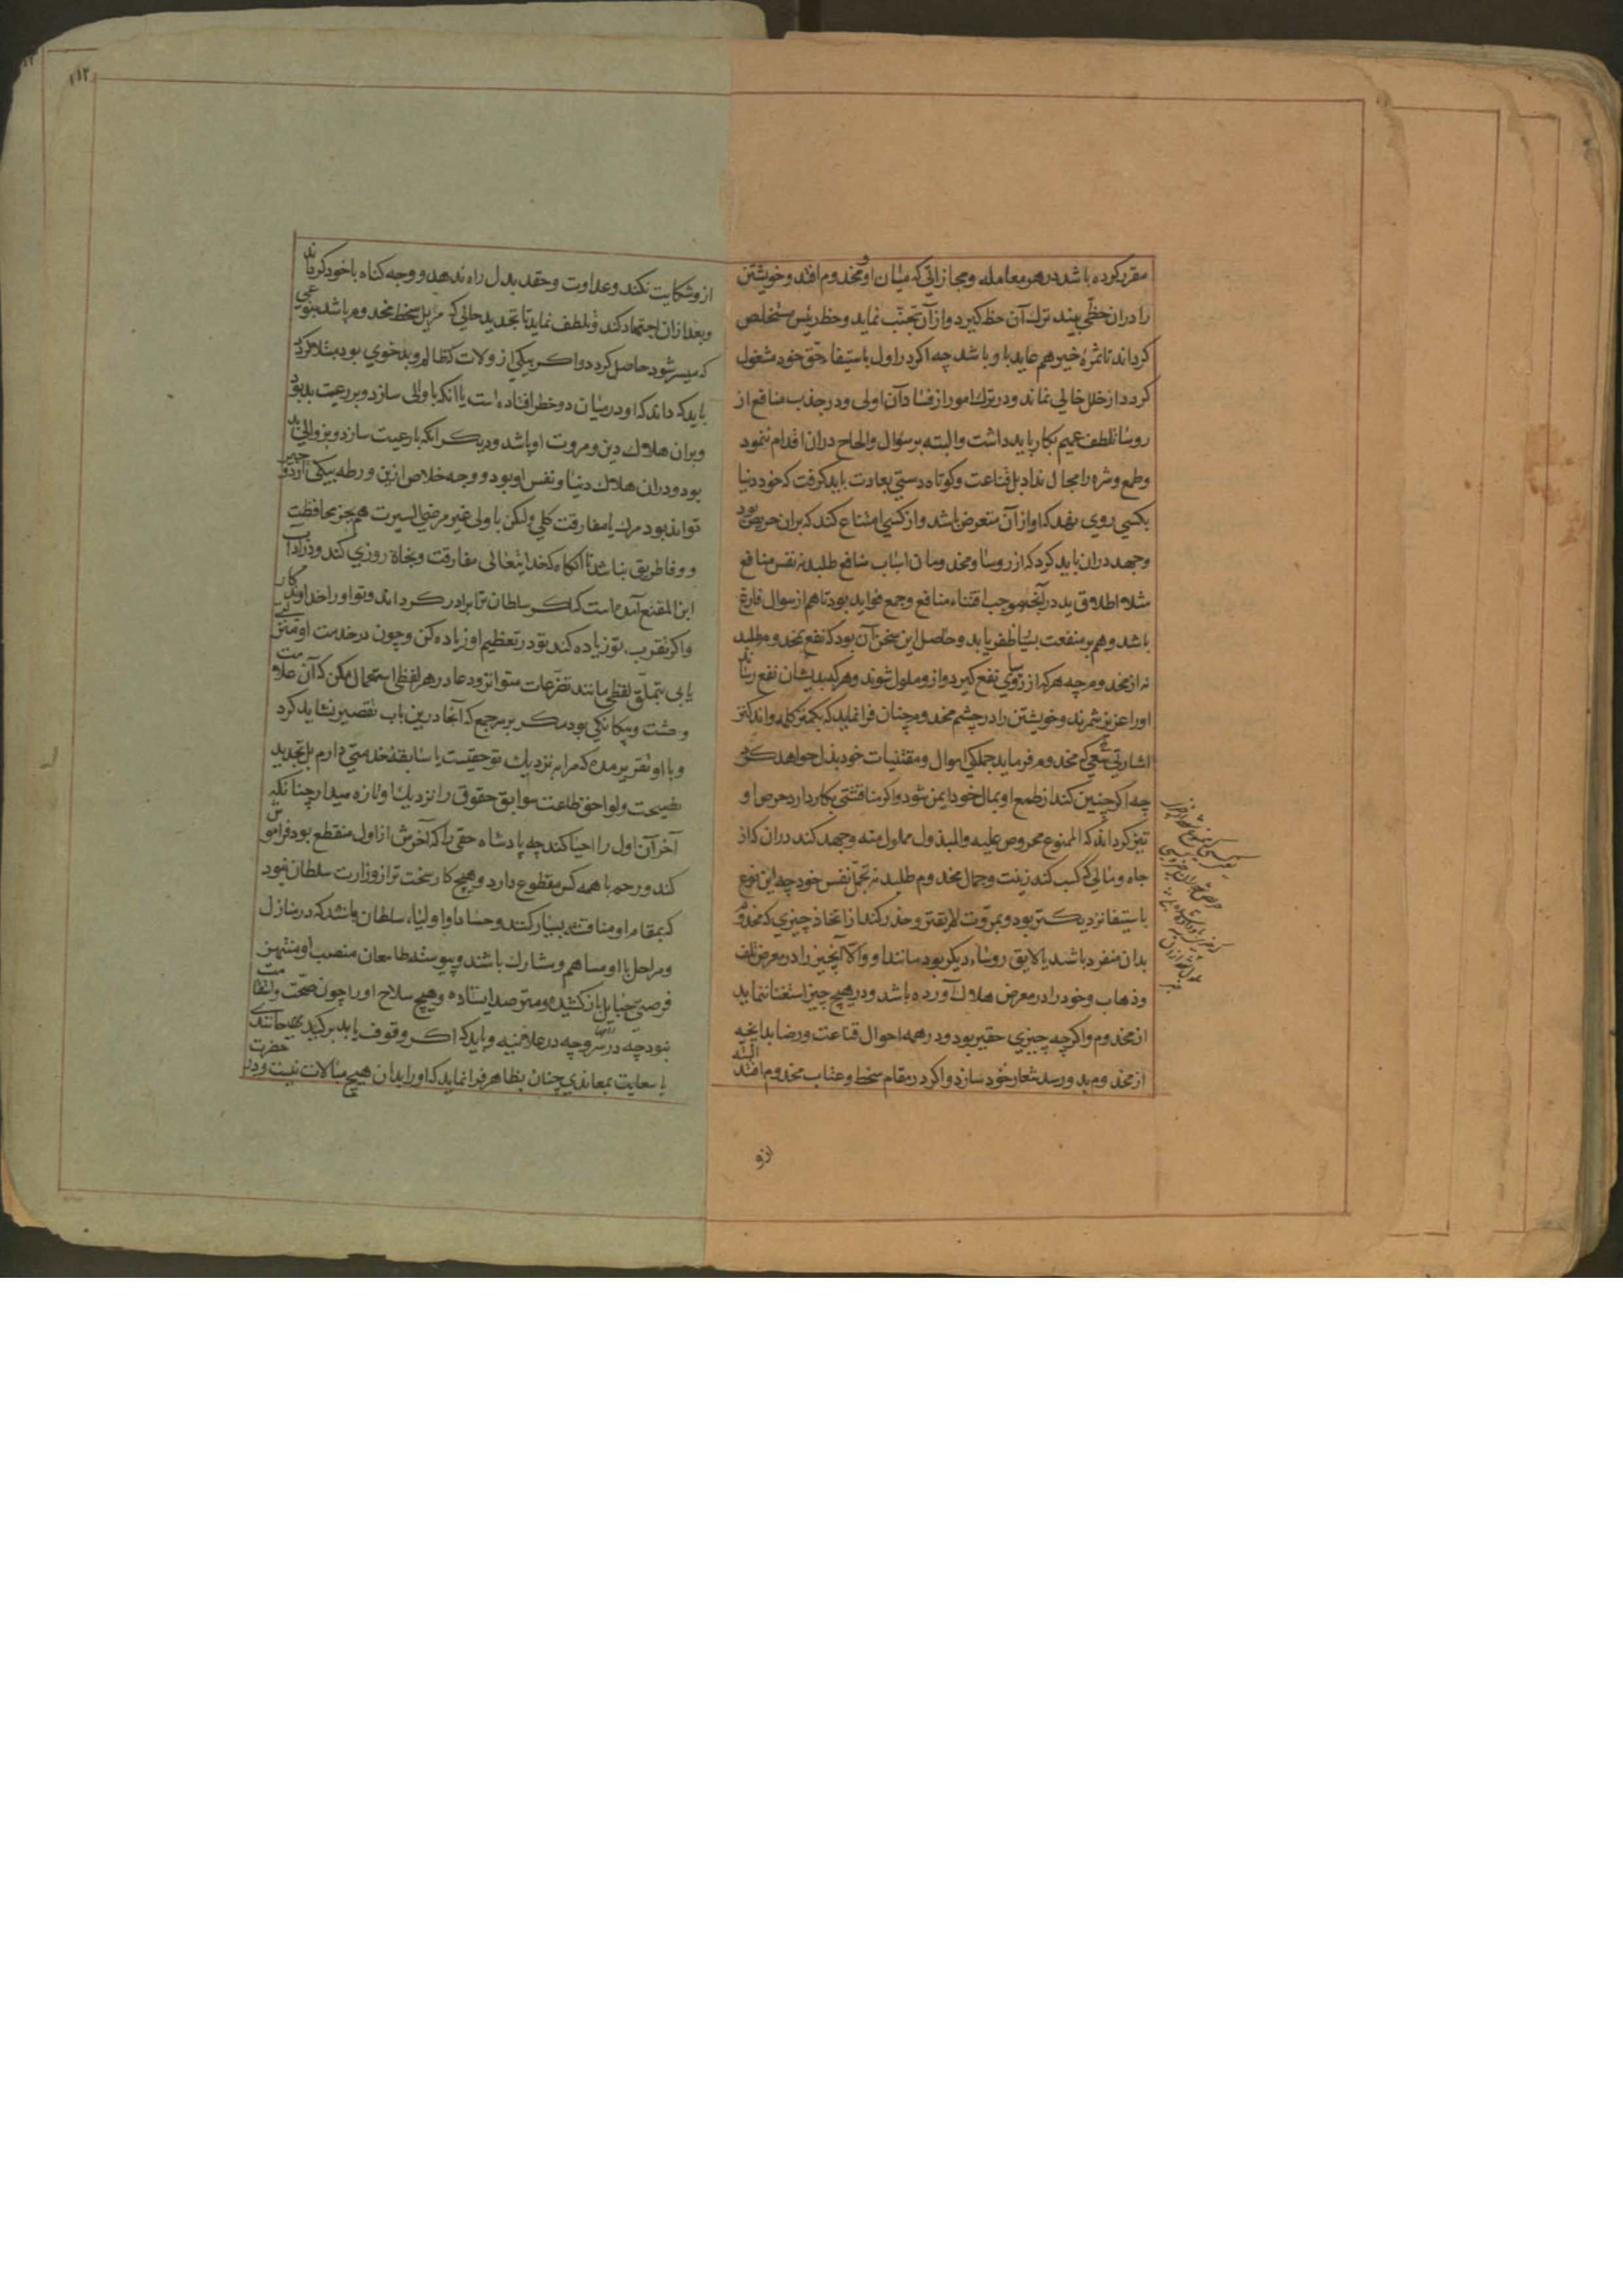 مقرر کرده باشد در هر معامله و مجازاتی که میان او و مخدوم افتد و خویشتن
را دران حظّی بیند ترك آن حظ کیرد و از آن تجنّب نماید و حظ رئیس مستخلص
کرداند تا ثمرهٔ خیر هم عاید با و باشد چه اکر در اول باستیفاء حقّ خود مشغول
کردد از خلل خالی نماند و در ترك امور از فساد آن اولی و در جذب منافع از
روسا تلطف عمیم بکار باید داشت و البته بر سؤال و الحاح دران اقدام ننمود
و طمع و شره را مجال نداد بل قناعت و کوتاه دستی بعادت باید کرفت که خود دنیا
بکسی روی نهد که او از آن متعرض باشد و از کسی امتناع کند که بران حریص بود
و جهد دران باید کرد که از روسا و مخدومان اسباب منافع طلبد نه نفس منافع
مثلا اطلاق ید در آنچه موجب اقتناء منافع و جمع فواید بود تا هم از سوال فارغ
باشد و هم بر منفعت بسیار ظفر یابد و حاصل این سخن آن بود که نفع بمخدوم طلبد
نه از مخدوم چه هر که از روسا نفع کیرد و ازو ملول شوند و هر که بدیشان نفع رساند
او را عزیز شمرند و خویشتن را در چشم مخدوم چنان فرا نماید که بکمتر کلمه و اندکتر
اشارتی سعی که مخدوم فرماید جملکی اموال و مقتنیات خود بذل خواهد کرد
چه اکر چنین کند از طمع او بمال خود ایمن شود و اکر مناقشتی بکار دارد حرص او
تیز کرداند که الممنوع محروص علیه و المبذول مملول منه و جهد کند دران که از
جاه و مالی که کسب کند زینت و جمال مخدوم طلبد نه تجمّل نفس خود چه این نوع
باستیفا نزدیکتر بود و بمروّت لایقتر و حذر کند از اتخاذ چیزی که مخدوم
بدان منفرد باشد یا لایق روساء دیکر بود مانند او و الّا آنچیز را در معرض تلف
و ذهاب و خود را در معرض هلاك آورده باشد و در هیچ چیز استغنا ننماید
از مخدوم و اکر چه چیزی حقیر بود و در همه احوال قناعت و رضا بدانچه
از مخدوم بدو رسد شعار خود سازد و اکر در مقام سخط و عتاب مخدوم افتد البته
ازو
۱۱۲
ازو شکایت نکند و عداوت و حقد بدل راه ندهد و وجه کناه با خود کرداند
و بعد ازان اجتهاد کند و تلطف نماید تا تجدید حالی که مزیل سخط مخدوم باشد بنوعی
که میسر شود حاصل کردد و اکر بیکی از ولات که ظالم و بدخوی بود مبتلا کردد
باید که داند که او در میان دو خطر افتاده است یا آنکه با والی سازد و بر رعیت بد بود
و بران هلاك دین و مروت او باشد و دیکر آنکه با رعیت سازد و بر والی بد
بود و دران هلاك دنیا و نفس او بود و وجه خلاص ازین ورطه بیکی از دو چیز
تواند بود مرك یا مفارقت کلی و لکن با والی غیر مرضی السیرت هم بجز محافظت
و وفا طریق نباشد تا آنکاه که خدایتعالی مفارقت و نجاة روزی کند و در آداب
ابن المقنع آمده است که اکر سلطان ترا برادر کرداند و تو او را خداوندکار
و اکر تقرب تو زیاده کند تو در تعظیم او زیاده کن و چون در خدمت او منزلتی
یابی بتملّق لفظی مانند تضرّعات متواتر و دعا در هر لفظی استعمال مکن که آن علامت
وحشت و بیکانکی بود مکر بر سر جمع که آنجا درین باب تقصیر نشاید کرد
و با او تقریر مده که مرا بر نزدیك تو حقیست یا سابقهٔ خدمتی دارم بل بتجدید
نصیحت و لواحق طاعت سوابق حقوق را نزدیك او تازه میدار چنانکه
آخر آن اول را احیا کند چه پادشاه حقی را که آخرش از اول منقطع بود فراموش
کند و رحم با همه کس مقطوع دارد و هیچ کار سخت تر از وزارت سلطان نبود
که بمقام او منافسه بسیار کنند و حساد او اولیاء سلطان باشند که در منازل
و مراحل با او مساهم و مشارك باشند و پیوسته طامعان منصب او منتهز
فرصتی حبایل باز کشیده و مترصد ایستاده و هیچ سلاح او را چون صحّت و استقامت
نبود چه در سرّ و چه در علانیه و باید که اکر وقوف یابد بر کید حاسدی
یا سعایت معاندی چنان بظاهر فرا نماید که او را بدان هیچ مبالات نیست و در حضرت